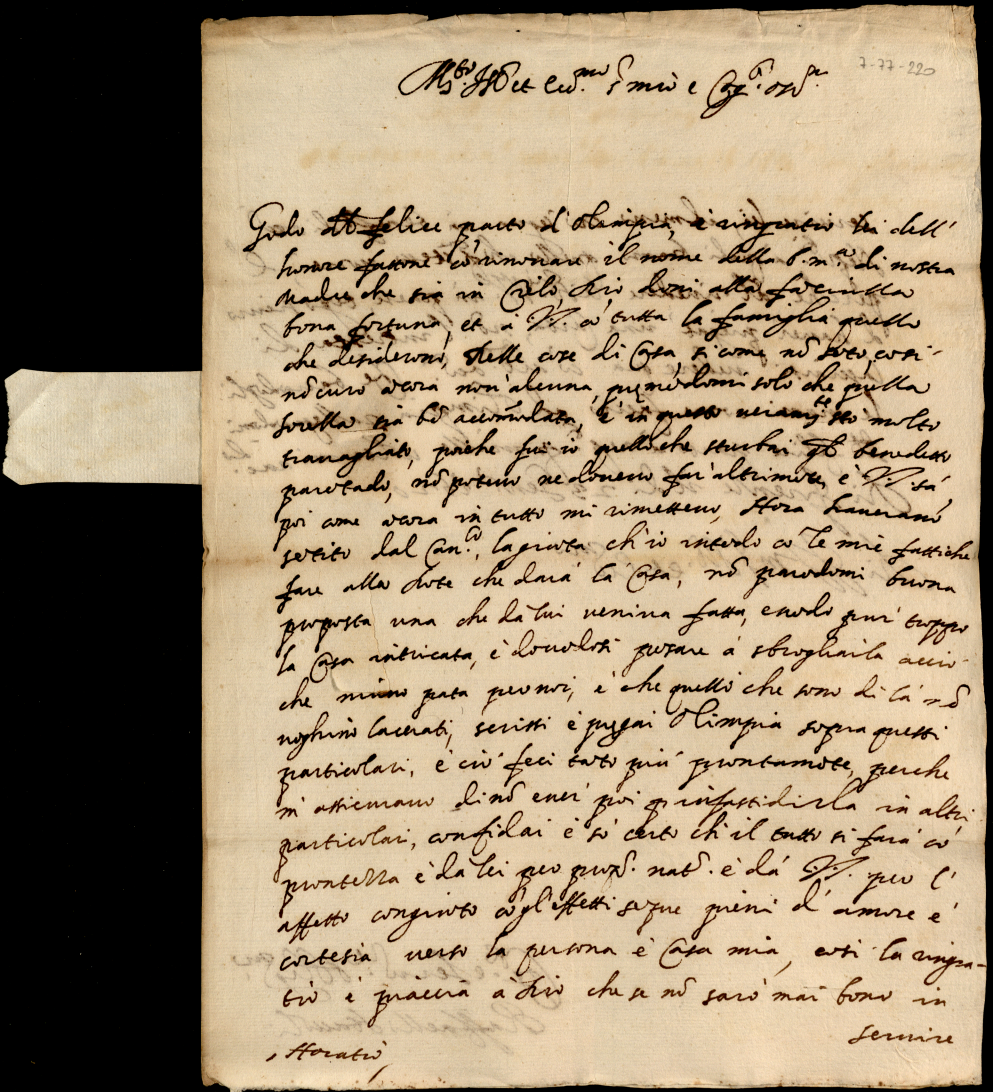 7-77-220
Mto Ill et Ecc.mo Sr mio e Cog.to oss.r
Godo del felice parto d'Olimpia, è ringratio lei dell'
honore fattone cō rinovare il nome della b.m.a di nostra
Madre che sia in Cielo, Dio doni alla fanciulla
bona fortuna, et à V.S. cō tutta la famiglia quello
che desiderono, Delle cose di Casa, sicome nō hoto, cosi
nō curo ācora non'alcuna, premēdomi solo che quella
sorella sia bē accommodata, è in questo veram.te stò molto
travagliato, poiche fui io quello che sturbai qł benedetto
parētado, nō potevo ne dovevo far altrimēte, è V.S. sà
poi come ācora in tutto mi rimettevo, Hora haveranō
sētito dal Can.co, la giōta ch'io intēdo cō le mie fattiche
fare alla dote che darà la Casa, nō parēdomi buona
proposta una che dà lui veniva fatta, essēdo pur troppo
la Casa intricata, è dovēdosi pēsare à sbrogliarla accio
che niuno pata per noi, è che quelli che sono di là nō
venghino lacerati, scrissi è pregai Olimpia sopra questi
particolari, è ciò feci tāto più prontamēte, perche
m'assicuravo di nō esser poi p infastidirla in altri
particolari, confidai è sò certo ch'il tutto si farà cō
prontezza è da lei per prop.a nat.a è dà V.S. per l'
affetto congiōto cō gl'effetti sēpre pieni d'amore è
cortesia verso la persona è Casa mia, cosi la ringra-
tio è piaccia à Dio che se nō sarò mai bono in
servire
Horatio